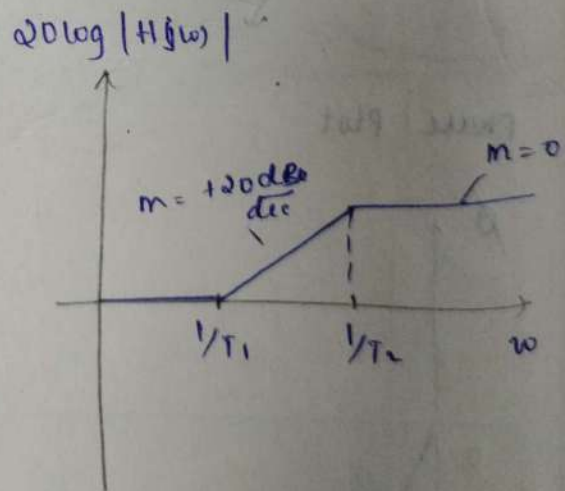 20log |H(jω)|
m = 0
m = +20 dB/dec
1/T1
1/T2
ω